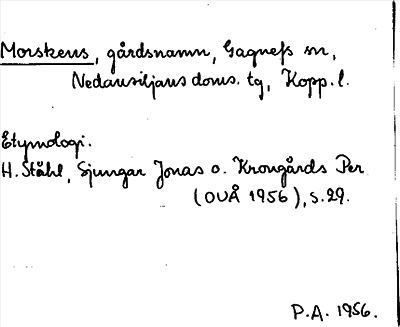 Morskens, gårdsnamn, Gagnefs sn,
Nedansiljans doms. tg, Kopp. l.
Etymologi.
H. Ståhl, Sjungar Jonas o. Krongårds Per
(OUÅ 1956), s. 29.
P.A. 1956.